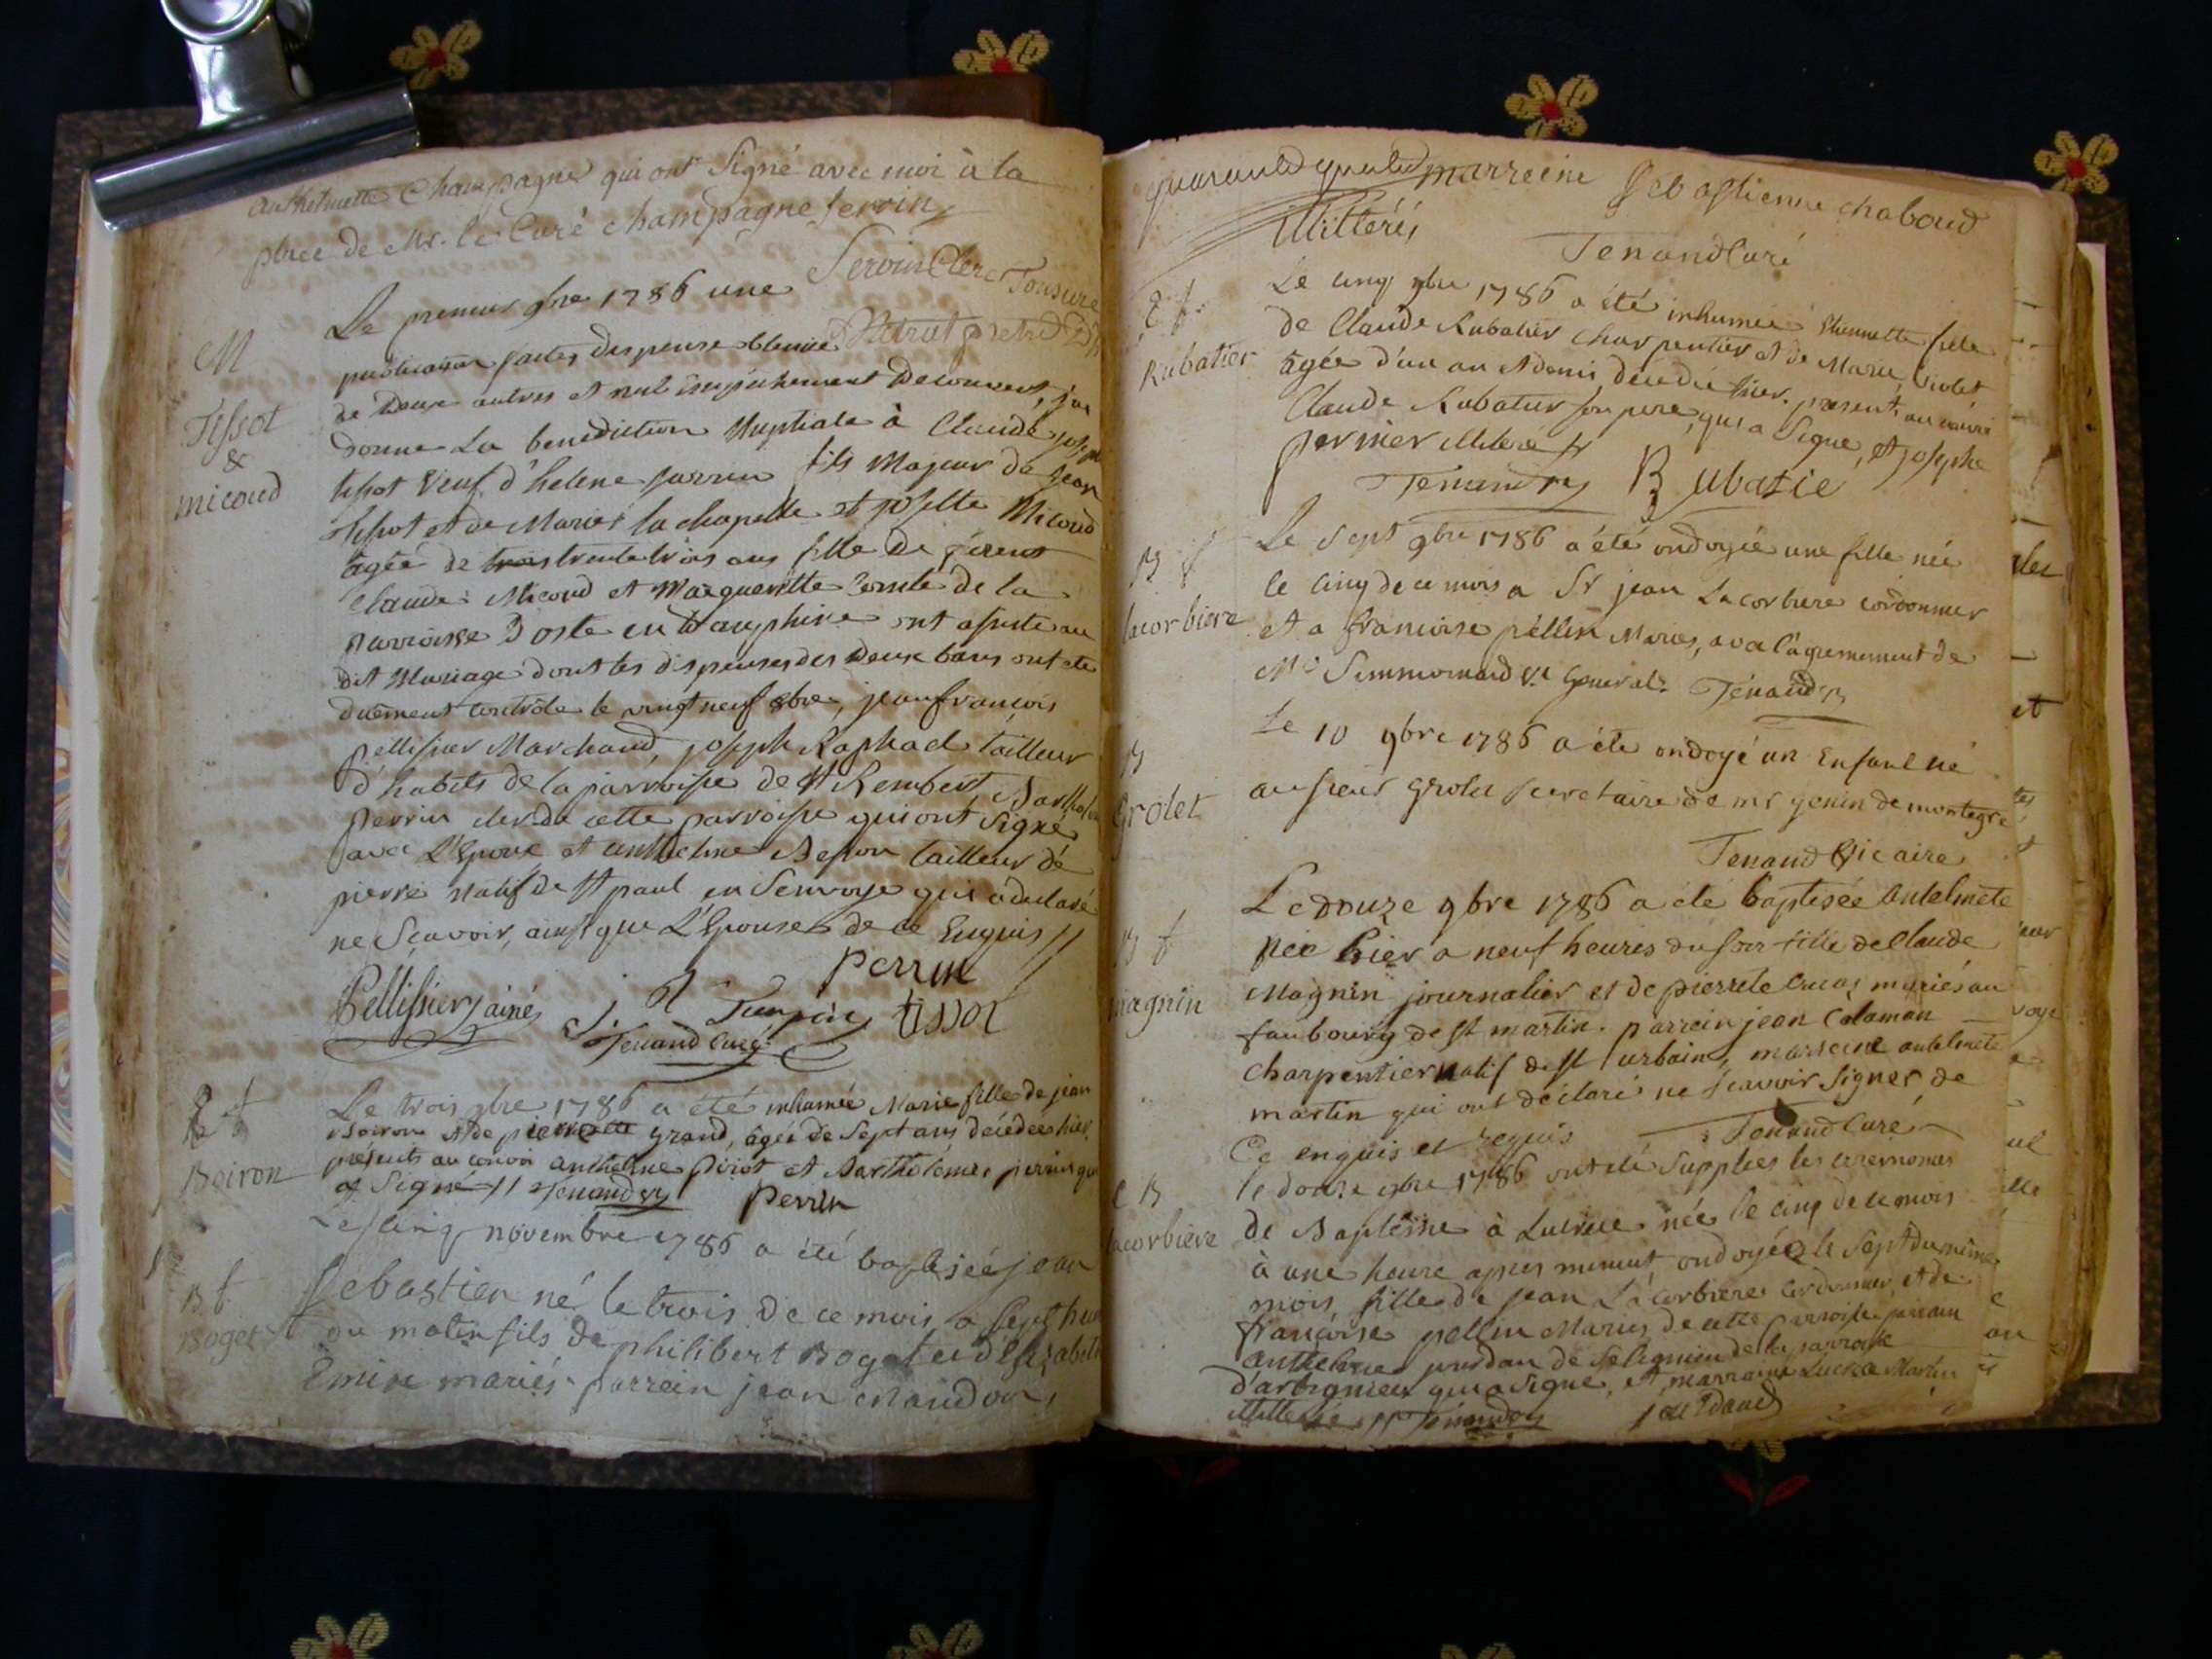 anthelmette Champagne qui ont Signé avec moi à la
place de Mr. le Curé champagne servin
Servin Clerc Tonsure
M
Tissot
&
micoud
Le premier 9bre 1786 une
publication faites dispense obtenüe
de Deux autres et nul empechement Decouvert, j'ai
donne La benediction Nuptiale à Claude joseph
tissot Veuf d'helene fils Majeur de jean
tissot et de Marie la chapelle et josette Micoud
agée de trois trente trois ans fille de
Claude Micoud et Marguerite Comte de la
parroisse D'oste en Dauphine ont assiste au
dit Mariage dont les dispenses des Deux bans ont ete
duement controle le vingt neuf 8bre, jean francois
pellissier Marchand, joseph Raphael tailleur
d'habits de la parroisse de St Rembert
perrin clerc de cette parroisse qui ont signé
avec L'epoux et anthelme Besson tailleur de
pierre natif de St paul en Semvoye qui a declaré
ne Sçavoir, ainsi que L'Epouse de ce Enquis //
perrin
Pellissier ainé
tissot
Tenand Curé
Boiron
Le trois 9bre 1786 a été inhumée Marie fille de jean
Boiron et de pierrette grand, agée de Sept ans décédée hier,
presents au convoi anthelme pirot et Bartholome perrin qui
a Signé // Tenand perrin
B t
Boget
Le cinq novembre 1786 a été baptisée jean
Sebastien né le trois de ce mois a sept heures
du matin fils de philibert Boget et d'Elisabeth
Emin mariés parrein jean Naudon,
quarante quatre marreine Sebastienne chaboud
illitterés
Tenand Curé
Rubatier
Le cinq 9bre 1786 a été inhumée Etiennette fille
de Claude Rubatier charpentier et de Marie Violet
agée d'un an et demi, decedée hier. present au convoi
Claude Rubatier son pere, qui a Signe, et josephe
permier illiteré //
Tenand Rubatie
B t
lacorbiere
Le Sept 9bre 1786 a été ondoyée une fille née
le cinq de ce mois a Sr jean Lacorbiere cordonnier
et a francoise pellin Mariés, avec l'agrement de
Mr Simmonard Vre General. Tenand
B
Grolet
Le 10 9bre 1786 a été ondoyé un Enfant né
au sieur grolet secretaire de mr genin de montegre
Tenand Vicaire
B t
magnin
Le Douze 9bre 1786 a été baptisée antelmete
née hier a neuf heures du soir fille de Claude
Magnin journalier et de pierrete cucas mariés au
faubourg de st martin. parrein jean Calaman
charpentier natif de st urbain, marreine antelmete
martin qui ont déclaré ne sçavoir signer de
Ce enquis et requis Tenand Curé
C B
lacorbiere
le douze 9bre 1786 ont été Supplées les ceremonies
de Baptême à Lucrece née le cinq de ce mois
à une heure apres minuit, ondoyée le Sept du même
mois fille de jean Lacorbiere Cordonnier et de
françoise pellin Mariés de cette parroisse parrain
anthelme jourdan de Selignieu de la parroisse
d'arbignieu qui a signe, et marraine Luce Martin
illitterée // Tenand jourdan